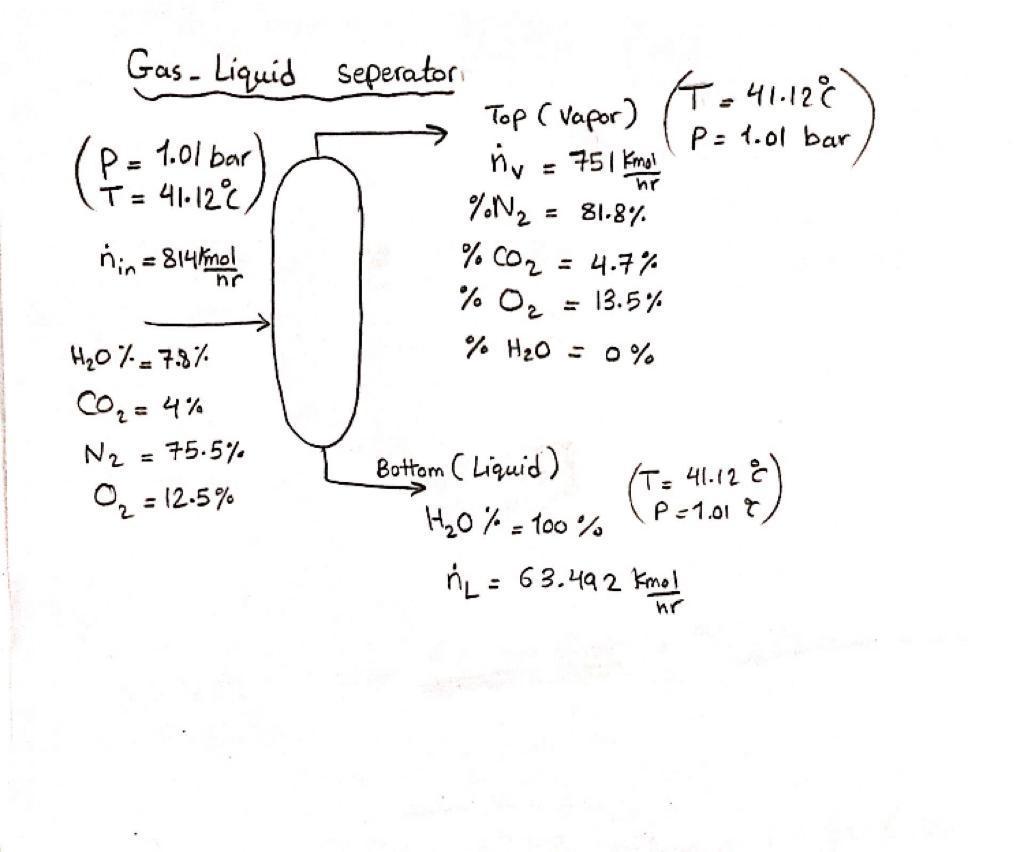 Gas - Liquid seperator
(P = 1.01 bar
T = 41.12°C)
ṅin = 814 Kmol/hr
H₂O % = 7.8%
CO₂ = 4%
N₂ = 75.5%
O₂ = 12.5%
Top (Vapor)
(T = 41.12°C
P = 1.01 bar)
ṅv = 751 Kmol/hr
%N₂ = 81.8%
% CO₂ = 4.7%
% O₂ = 13.5%
% H₂O = 0%
Bottom (Liquid)
(T = 41.12°C
P = 1.01 °C)
H₂O % = 100%
ṅL = 63.492 Kmol/hr